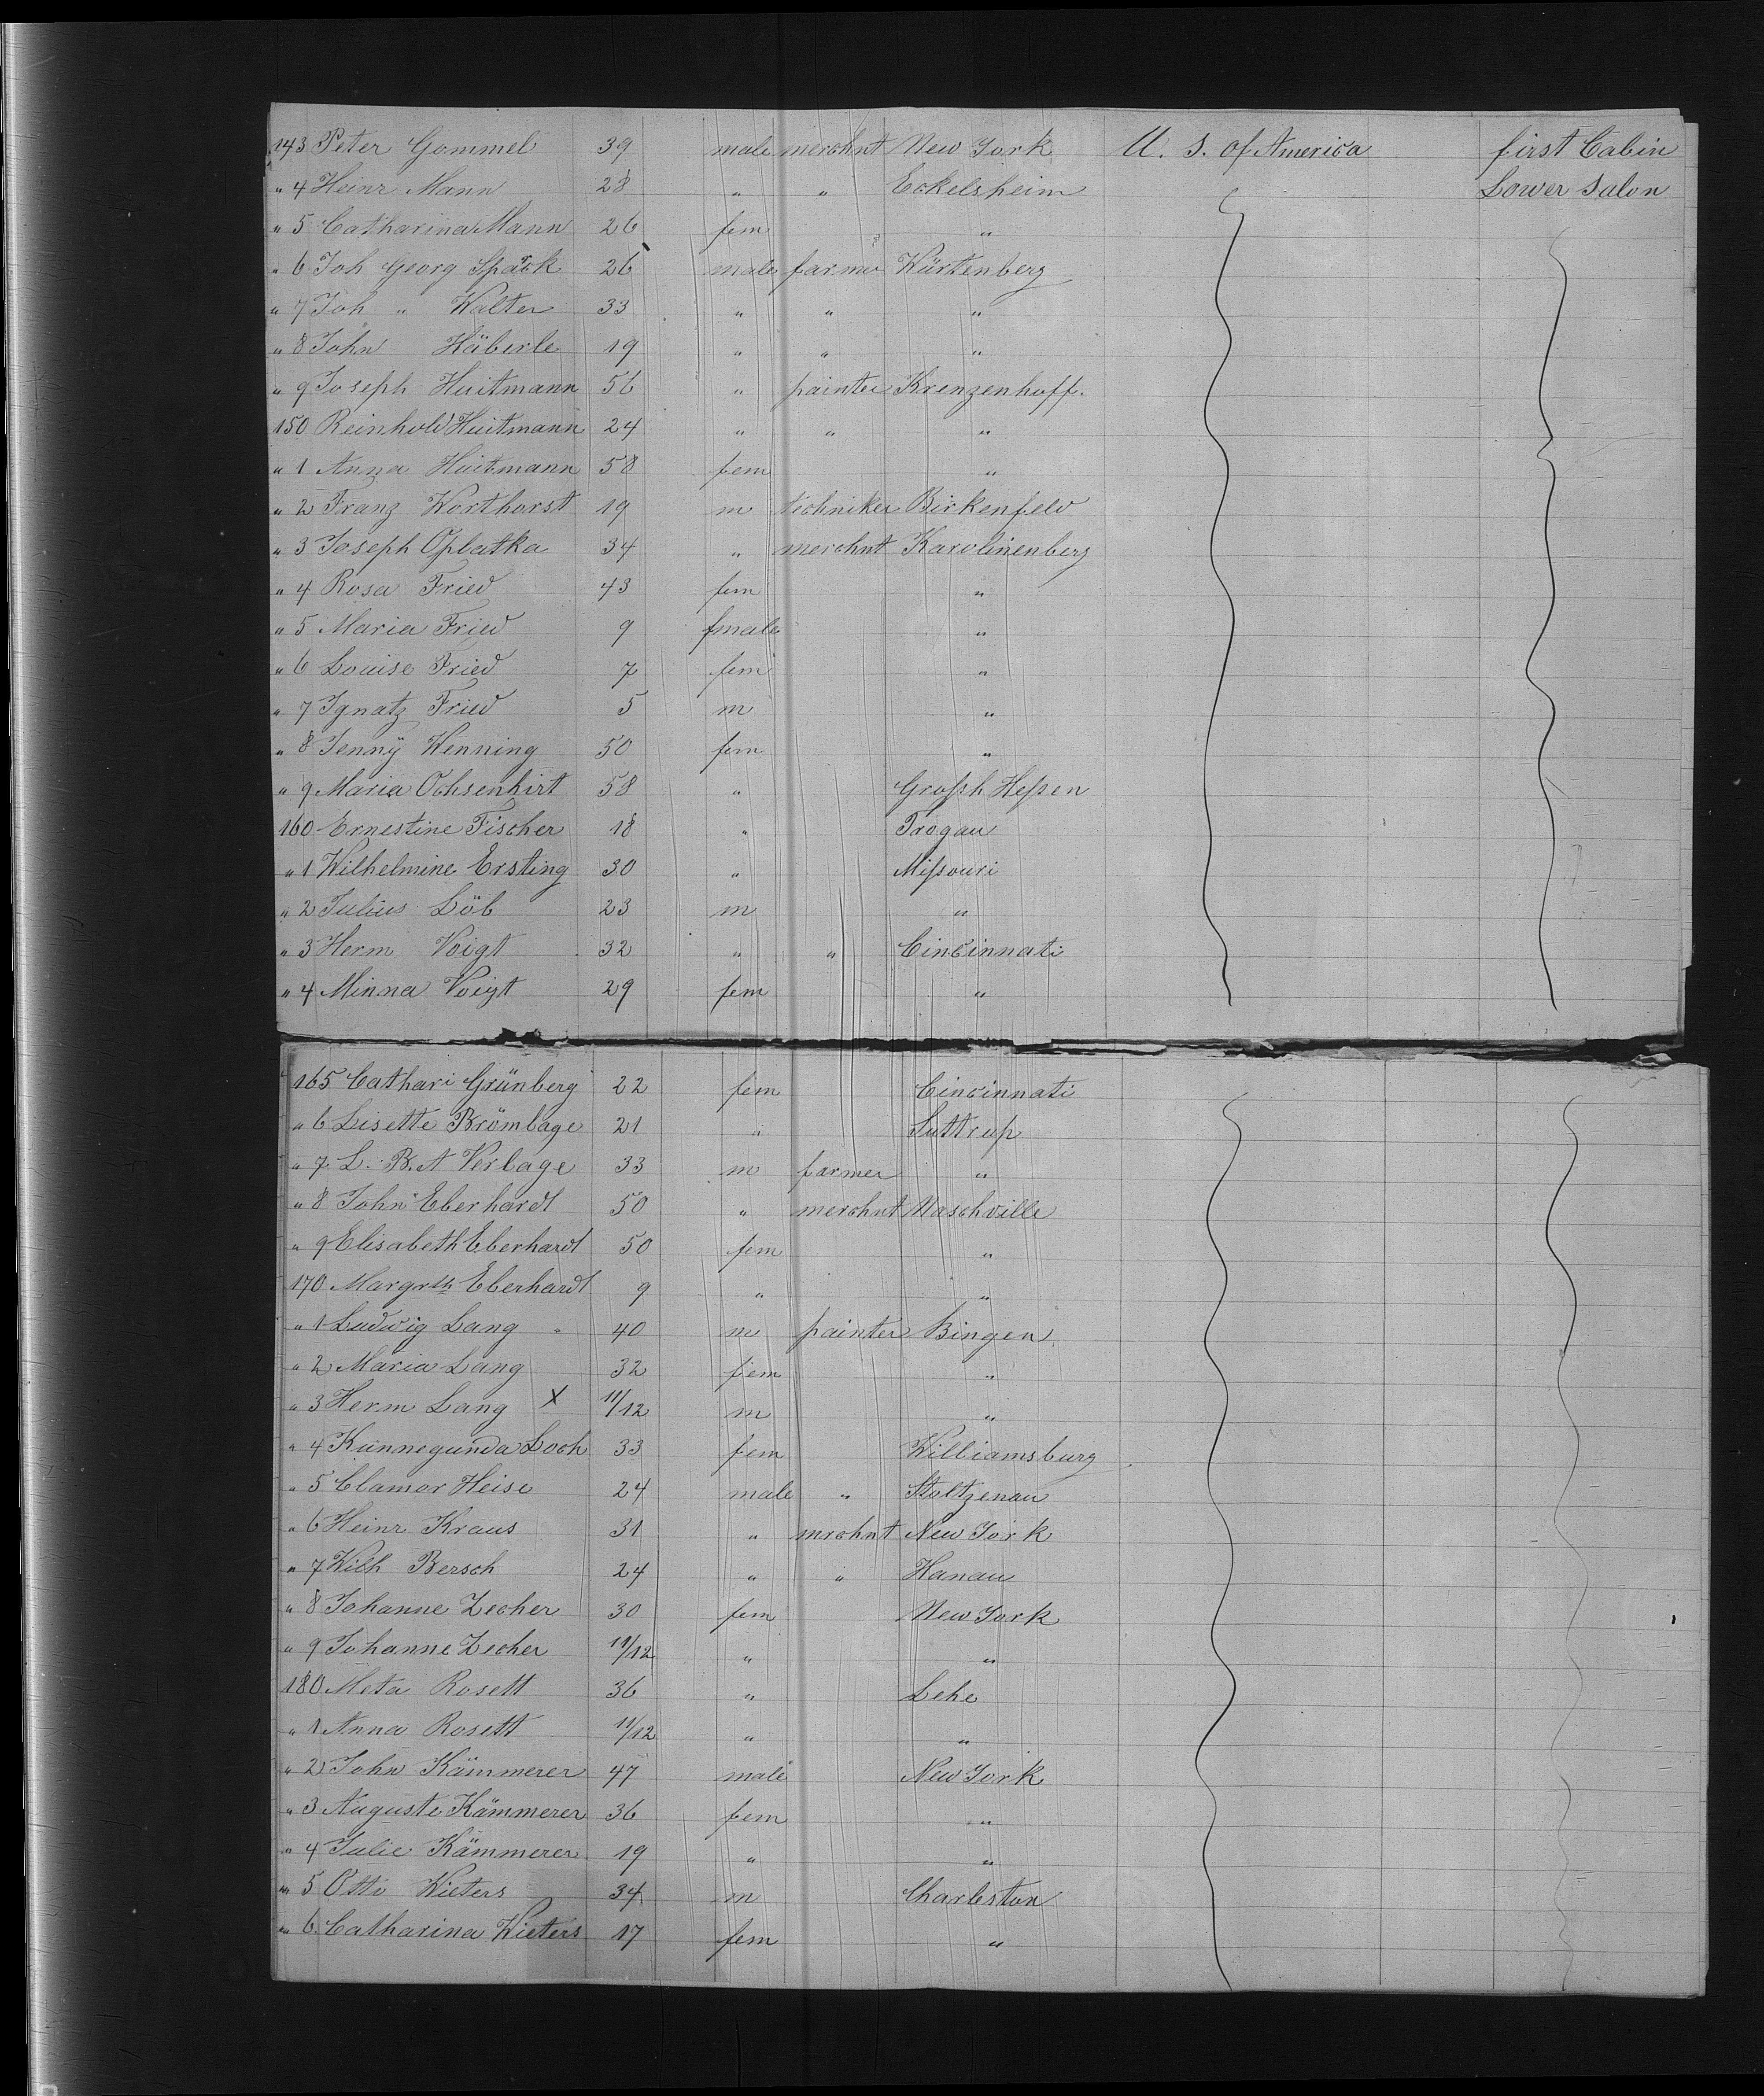 143 Peter Gommel 39 male merchnt New York U. S. of America first Cabin
" 4 Heinr Mann 28 " " Eckelsheim Lower Salon
" 5 Catharina Mann 26 fem "
" 6 Joh Georg Sparck 26 male farmer Würtenberg
" 7 Joh " Walter 33 " " "
" 8 John Häberle 19 " " "
" 9 Joseph Huitmann 56 " painter Krenzenhoff.
150 Reinhold Huitmann 24 " " "
" 1 Anna Huitmann 58 fem "
" 2 Franz Worthorst 19 m techniker Birkenfeld
" 3 Joseph Oplatka 34 " merchnt Karolinenberg
" 4 Rosa Fried 43 fem "
" 5 Maria Fried 9 fmale "
" 6 Louise Fried 7 fem "
" 7 Ignatz Fried 5 m "
" 8 Jenny Henning 50 fem "
" 9 Maria Ochsenhirt 58 " Großh Heßen
160 Ernestine Fischer 18 " Trogau
" 1 Wilhelmine Ersting 30 " Mißouri
" 2 Julius Löb 23 m "
" 3 Herm Voigt 32 " " Cincinnati
" 4 Minna Voigt 29 fem "
165 Cathari Grünberg 22 fem Cincinnati
" 6 Lisette Brömbage 21 " Luttrup
" 7 L. B. A Verbage 33 m farmer "
" 8 John Eberhardt 50 " merchnt Naschville
" 9 Elisabeth Eberhardt 50 fem "
170 Margrth Eberhardt 9 " "
" 1 Ludwig Lang " 40 m painter Bingen
" 2 Maria Lang 32 fem "
" 3 Herm Lang X 11/12 m "
" 4 Kunnegunda Loch 33 fem Williamsburg
" 5 Clamor Heise 24 male " Stoltzenau
" 6 Heinr Kraus 31 " mrchnt New York
" 7 Wilh Bersch 24 " " Hanau
" 8 Johanne Zecher 30 fem New York
" 9 Johanne Zecher 11/12 " "
180 Meta Rosett 36 " Lehe
" 1 Anna Rosett 11/12 " "
" 2 John Kämmerer 47 male New York
" 3 Auguste Kämmerer 36 fem "
" 4 Julie Kämmerer 19 " "
" 5 Otto Wieters 34 m Charleston
" 6 Catharina Wieters 17 fem "